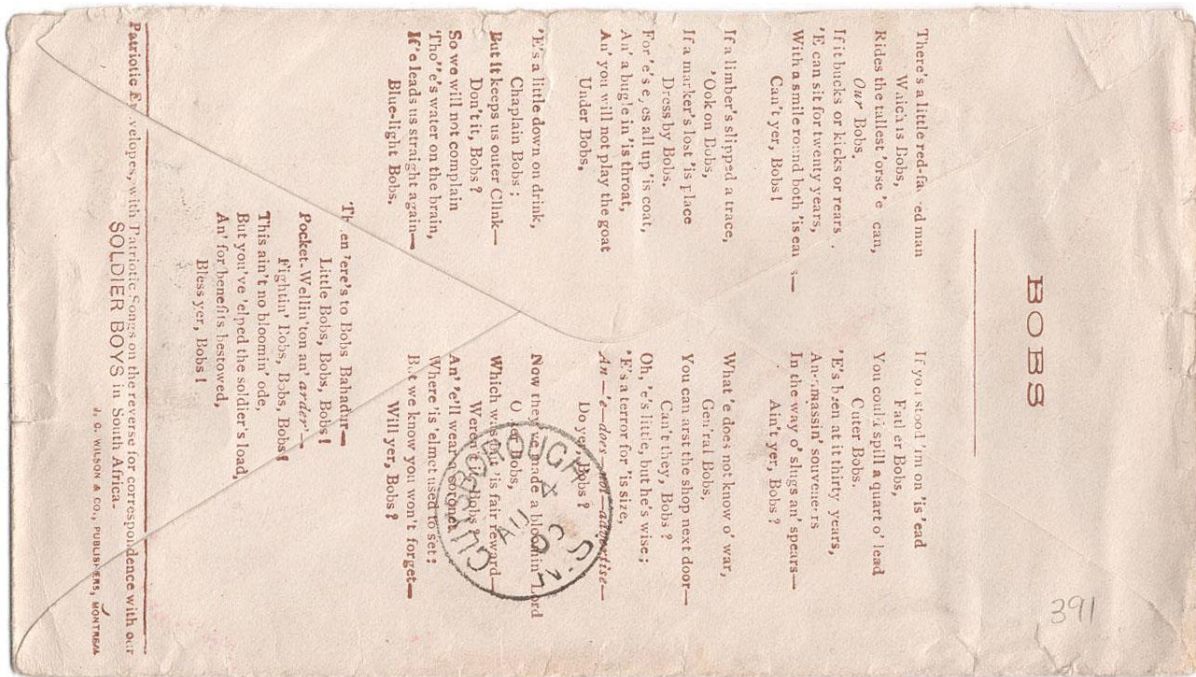 BOBS
There's a little red-faced man
Which is Bobs,
Rides the tallest 'orse 'e can,
Our Bobs.
If it bucks or kicks or rears
'E can sit for twenty years,
With a smile round both 'is ears—
Can't yer, Bobs!
If a limber's slipped a trace,
'Ook on Bobs,
If a marker's lost 'is place
Dress by Bobs.
For 'e's eyes all up 'is coat,
An' a bugle in 'is throat,
An' you will not play the goat
Under Bobs.
'E's a little down on drink,
Chaplain Bobs;
But it keeps us outer Clink—
Don't it, Bobs?
So we will not complain
Tho' 'e's water on the brain,
If 'e leads us straight again—
Blue-light Bobs.
If you stood 'im on 'is 'ead
Father Bobs,
You could spill a quart o' lead
Outer Bobs.
'E's been at it thirty years,
An-amassin' souveneers
In the way o' slugs an' spears—
Ain't yer, Bobs?
What 'e does not know o' war,
Gen'ral Bobs,
You can arst the shop next door—
Can't they, Bobs?
Oh, 'e's little, but he's wise;
'E's a terror for 'is size,
An—'e—does—not—advertise—
Do yer, Bobs?
Now they've made a bloomin' Lord
Outer Bobs,
Which was but 'is fair reward—
Weren't it, Bobs?
An' 'e'll wear a coronet
Where 'is 'elmet used to set:
But we know you won't forget—
Will yer, Bobs?
Then 'ere's to Bobs Bahadur—
Little Bobs, Bobs, Bobs!
Pocket-Wellin'ton an' arder—
Fightin' Bobs, Bobs, Bobs!
This ain't no bloomin' ode,
But you've 'elped the soldier's load,
An' for benefits bestowed,
Bless yer, Bobs!
Patriotic Envelopes, with Patriotic Songs on the reverse for correspondence with our
SOLDIER BOYS in South Africa.
J. C. WILSON & CO., PUBLISHERS, MONTREAL
AU
00
391